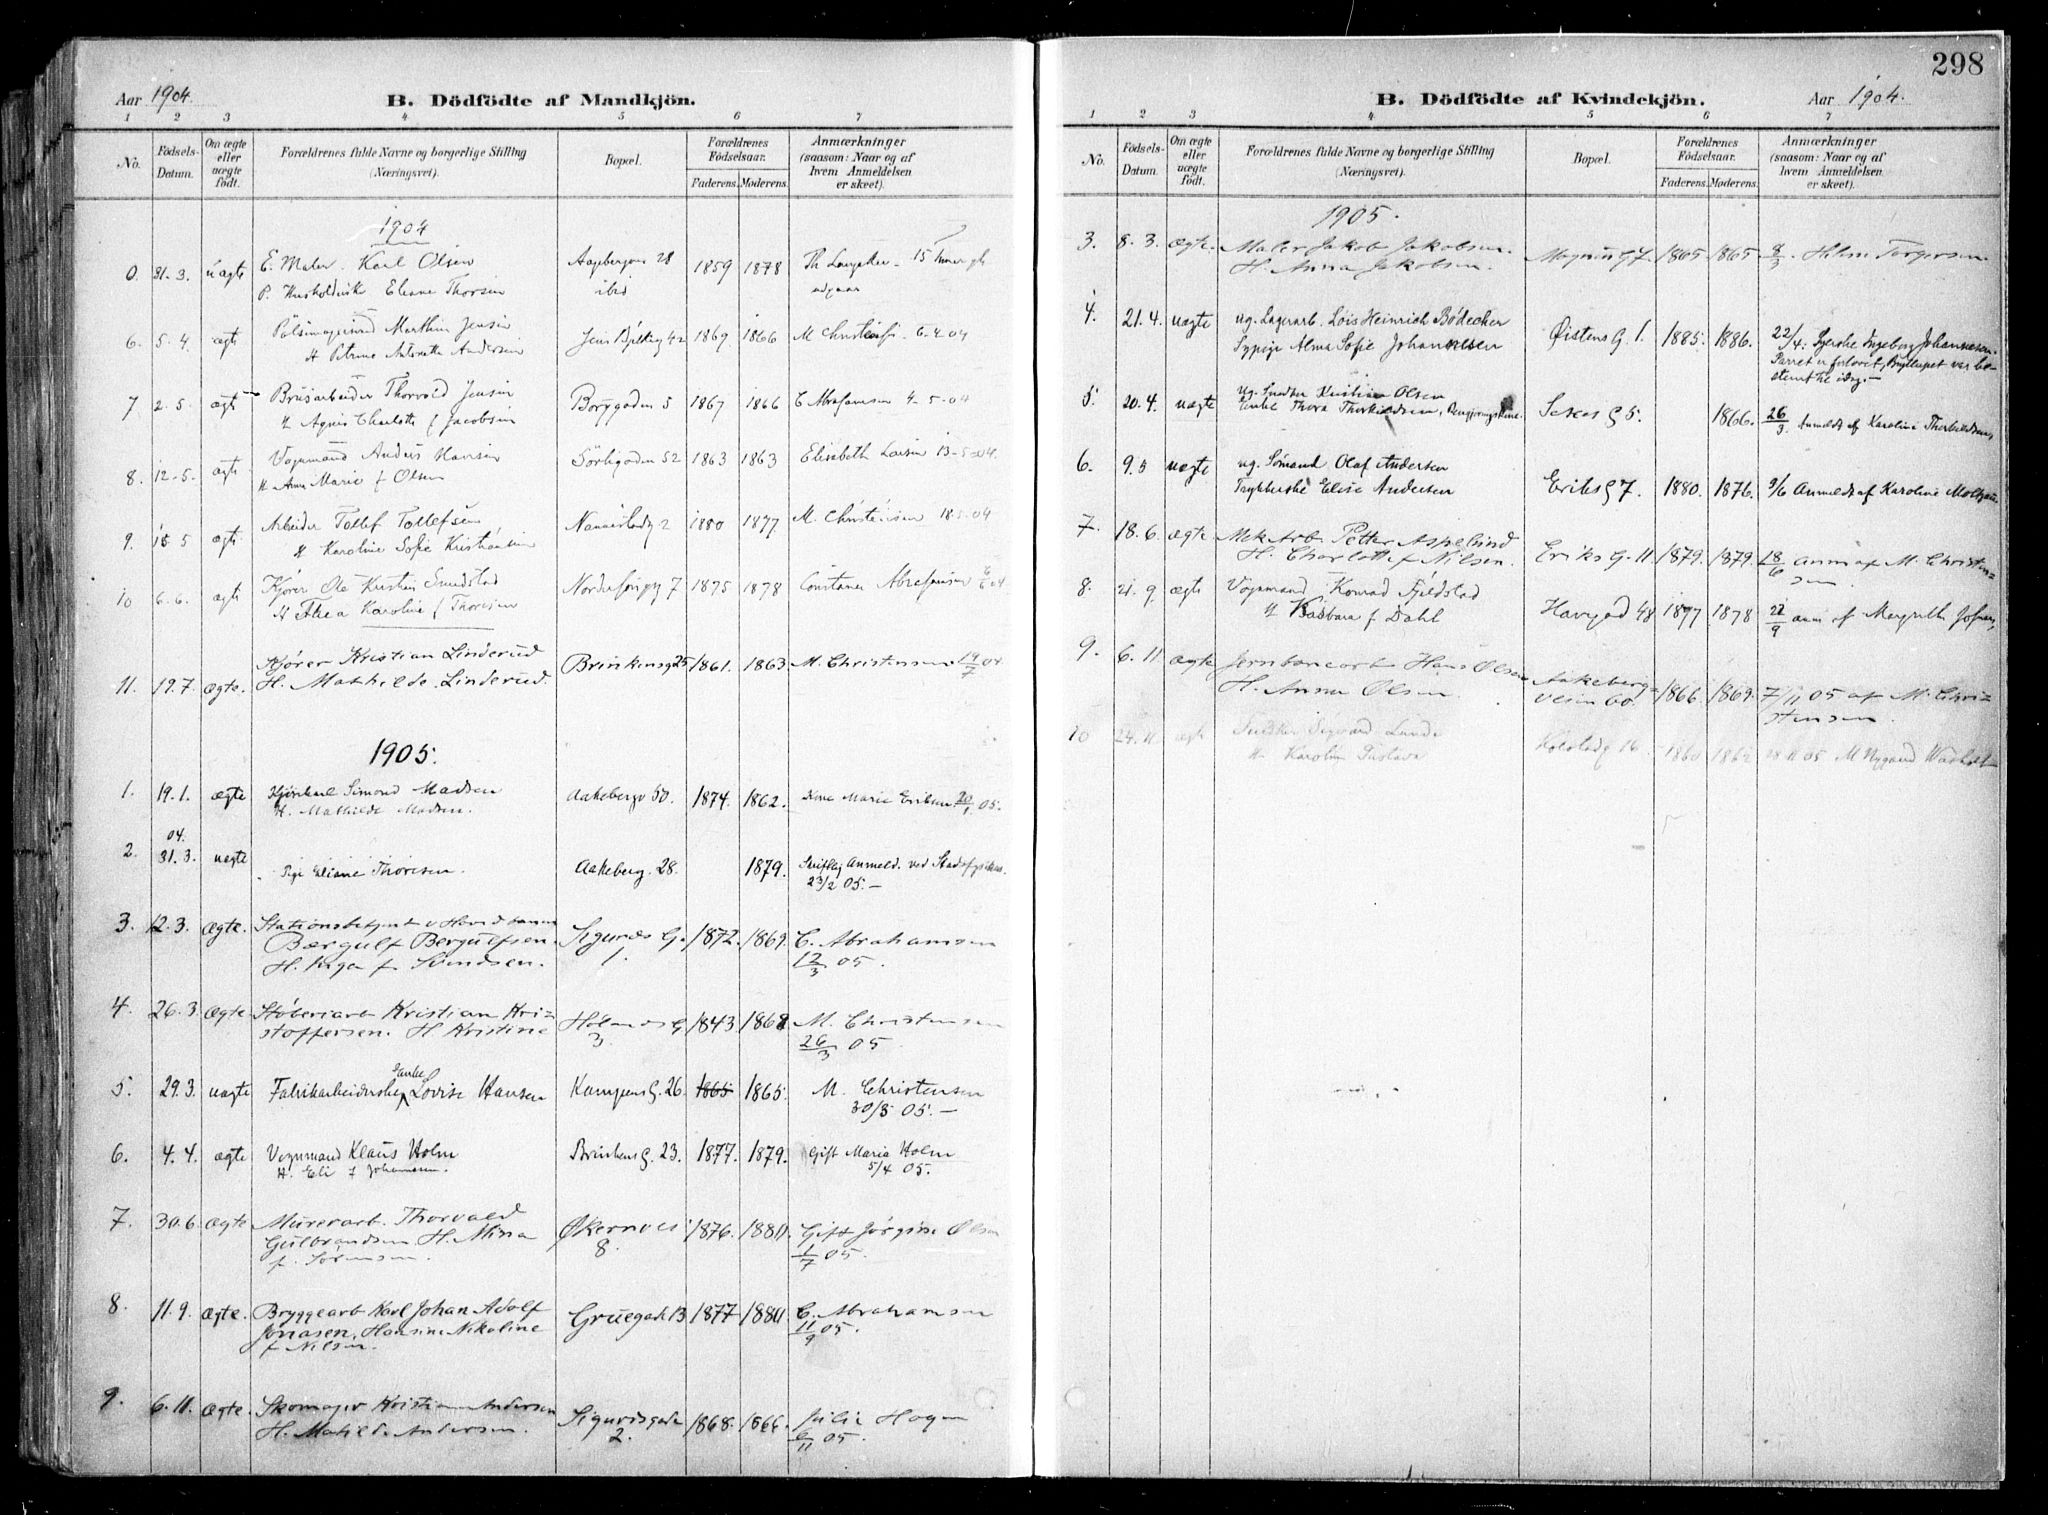 298
Aar 1904.
B. Dödfödte af Mandkjön.
1 2 3 4 5 6 7
No.
Födsels-Datum.
Om ægte eller uægte födt.
Forældrenes fulde Navne og borgerlige Stilling
(Næringsvei).
Bopæl.
Forældrenes Födselsaar.
Faderens. Moderens.
Anmærkninger
(saasom: Naar og af
hvem Anmeldelsen
er skeet).
1904
0. 31. 3. uægte E. Maler Karl Olsen Aagebergvn 28 1859 1878 Th
P. Eliane Thorsen ibid
6. 5. 4. ægte Marthin Jensen 42 1869 1866 M Christensen 6-4-04
H Petrine Antonette Andersen
7 2. 5. ægte Brusarbeider Thorvald Jensen Borggaden 5 1867 1866 C Abrahamsen 4-5-04
H Agnes Charlotte f Jacobsen
8. 12-5. ægte Vognmand Anders Hansen Sörligaden 52 1863 1863 Elisabeth Larsen 13-5-04.
H Anne Marie f Olsen
9. 15 5 ægte Arbeider Tollef Tollefsen 2 1880 1877 M. Christensen 18-5-04
H Karoline Sofie Kristiansen
10 6. 6. ægte Kjører Ole Kristen Sundstad 7 1875 1878 Constance Abrahamsen 6/6 04
H Thea Karoline f Thoresen
Kjörer Kristian Linderud Brinkensg 25 1861. 1863 M. Christensen 19/7 04.
11. 19.7. ægte. H. Mathilde Linderud.
1905.
1. 19.1. ægte Kjörekarl Simond Madsen Aakebergv 50. 1874. 1862. Marie Eriksen 20/1 05.
H. Mathilde Madsen.
04.
2. 31.3. uegte Pige Eliane Thorisen. Aakeberg. 28. 1879. Skriftlig Anmeld. ved Stadsfysikus
23/2 05.—
3. 12.3. Ægte. Stationsbetjent v Hovedbanen Sigurds G. 1872. 1869. C. Abrahamsen
Bergulf Bergulfsen. 1. 12/3 05.
H. Inga f Svendsen.
4. 26.3. Ægte Støberiarb Kristian Kri= Hölands G. 1843 1868 M. Christensen
stoffersen. H Kristine 3. 26/3 05.
5. 29.3. uægte Fabrikarbeiderske Enke Lovise Hansen Kampens G. 26. 1865 1865. M. Christensen
30/3 05.—
6. 4.4. ægte Vognmand Klaus Holm Brinkens G. 23. 1877. 1879. Gift Maria Holm
H. Eli f Johannesen. 5/4 05.
7. 30.6. ægte Murerarb. Thorvald Økernvei 1876. 1880. Gift Jørgine Olsen
Gulbrandsen H. Mina 8. 1/7 05.
f. Sørensen.
8. 11.9. ægte. Bryggearb Karl Johan Adolf Gruegade 13 1877 1880 C. Abrahamsen
Jonasen, Hansine Nikoline 11/9 05.
f Nilsen.
9. 6.11. ægte. Skomager Kristian Andersen Sigurdsgade 1868. 1866. Julie Hagen
H. Matilde Andersen. 2. 6/11 05.
B. Dödfödte af Kvindekjön.
Aar 1904.
1 2 3 4 5 6 7
No.
Födsels-Datum.
Om ægte eller uægte födt.
Forældrenes fulde Navne og borgerlige Stilling
(Næringsvei).
Bopæl.
Forældrenes Födselsaar.
Faderens. Moderens.
Anmærkninger
(saasom: Naar og af
hvem Anmeldelsen
er skeet).
1905.
3. 8. 3. ægte. Maler Jakob Jakobsen. 7 1865 1865 8/3. Torgersen
H. Anna Jakobsen.
4. 21.4. uægte ug. Lagerarb. Lois Heinrich Bödecker Øistens G. 1. 1885. 1886. 22/4: Syerske Ingeborg Johannesen.
Sypige Alma Sofie Johannesen Parret er forlovet, Bryllupet var be-
stemt til idag.—
5. 20.4. uægte ug. Snedker Kristian Olsen Sexes G 5. 1866. 26/3 Anmeldt af Karoline Thorkildsen
Enke Thora Thorkildsen, Rengjøringskone.
6. 9.5 uægte ug. Sömand Olaf Andersen Eriks G 7. 1880. 1876. 9/6 Anmeldt af Karoline
Elise Andersen
7. 18.6. ægte Mek Arb. Petter Aspelund Eriks G. 11 1879. 1879. 18/6 anm af M. Christen=
H. Charlotte f Nilsen. sen
8. 21. 9. ægte Vognmand Konrad Fjeldstad Havegad 48 1877 1878 22/9 anm af Margrethe
H Barbara f Dahl
9. 6.11 ægte Jernbanearb Hans Olsen Aakeberg= 1866. 1869. 7/11 05 af M. Chri=
H. Anna Olsen. veien 60. stensen.
10 24.11 ægte Snedker Sigvard Lunde Kolstadg 16 1860 1862 28 11 05 M Nygaard
H Karoline Gustava